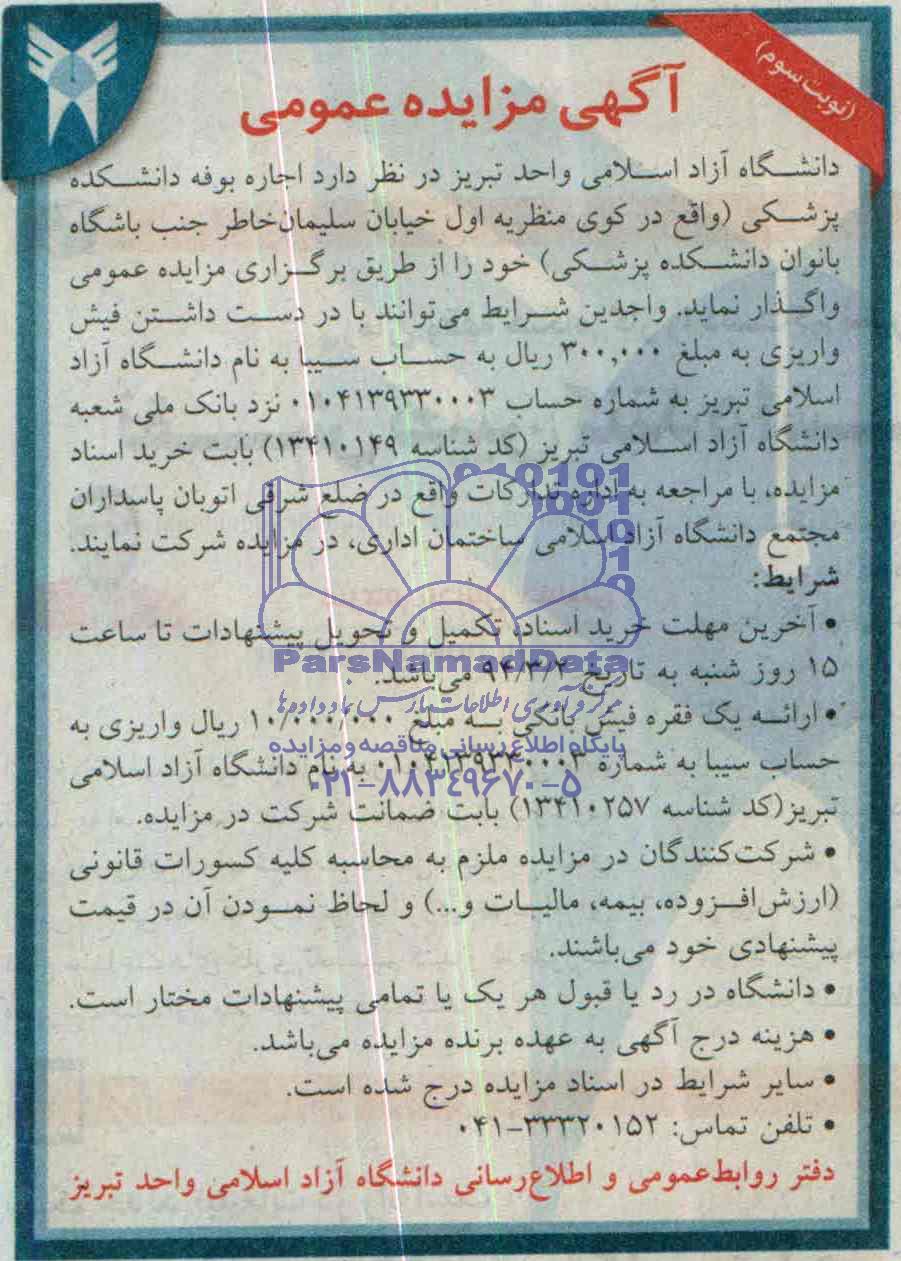 (نوبت سوم)
آگهی مزایده عمومی
دانشگاه آزاد اسلامی واحد تبریز در نظر دارد اجاره بوفه دانشکده
پزشکی (واقع در کوی منظریه اول خیابان سلیمان‌خاطر جنب باشگاه
بانوان دانشکده پزشکی) خود را از طریق برگزاری مزایده عمومی
واگذار نماید. واجدین شرایط می‌توانند با در دست داشتن فیش
واریزی به مبلغ ۳۰۰,۰۰۰ ریال به حساب سیبا به نام دانشگاه آزاد
اسلامی تبریز به شماره حساب ۰۱۰۴۱۳۹۳۳۰۰۰۳ نزد بانک ملی شعبه
دانشگاه آزاد اسلامی تبریز (کد شناسه ۱۳۴۱۰۱۴۹) بابت خرید اسناد
مزایده، با مراجعه به اداره تدارکات واقع در ضلع شرقی اتوبان پاسداران
مجتمع دانشگاه آزاد اسلامی ساختمان اداری، در مزایده شرکت نمایند.
شرایط:
• آخرین مهلت خرید اسناد، تکمیل و تحویل پیشنهادات تا ساعت
۱۵ روز شنبه به تاریخ ۹۴/۳/۲ می‌باشد.
ParsNamadData
مرکز فرآوری اطلاعات پارس نماد داده‌ها
• ارائه یک فقره فیش بانکی به مبلغ ۱۰/۰۰۰/۰۰۰ ریال واریزی به
پایگاه اطلاع رسانی مناقصه و مزایده
حساب سیبا به شماره ۰۱۰۴۱۳۹۳۴۰۰۰۳ به نام دانشگاه آزاد اسلامی
۰۲۱-۸۸۳۴۹۶۷۰-۵
تبریز(کد شناسه ۱۳۴۱۰۲۵۷) بابت ضمانت شرکت در مزایده.
• شرکت‌کنندگان در مزایده ملزم به محاسبه کلیه کسورات قانونی
(ارزش‌افزوده، بیمه، مالیات و...) و لحاظ نمودن آن در قیمت
پیشنهادی خود می‌باشند.
• دانشگاه در رد یا قبول هر یک یا تمامی پیشنهادات مختار است.
• هزینه درج آگهی به عهده برنده مزایده می‌باشد.
• سایر شرایط در اسناد مزایده درج شده است.
• تلفن تماس: ۳۳۳۲۰۱۵۲-۰۴۱
دفتر روابط‌عمومی و اطلاع‌رسانی دانشگاه آزاد اسلامی واحد تبریز